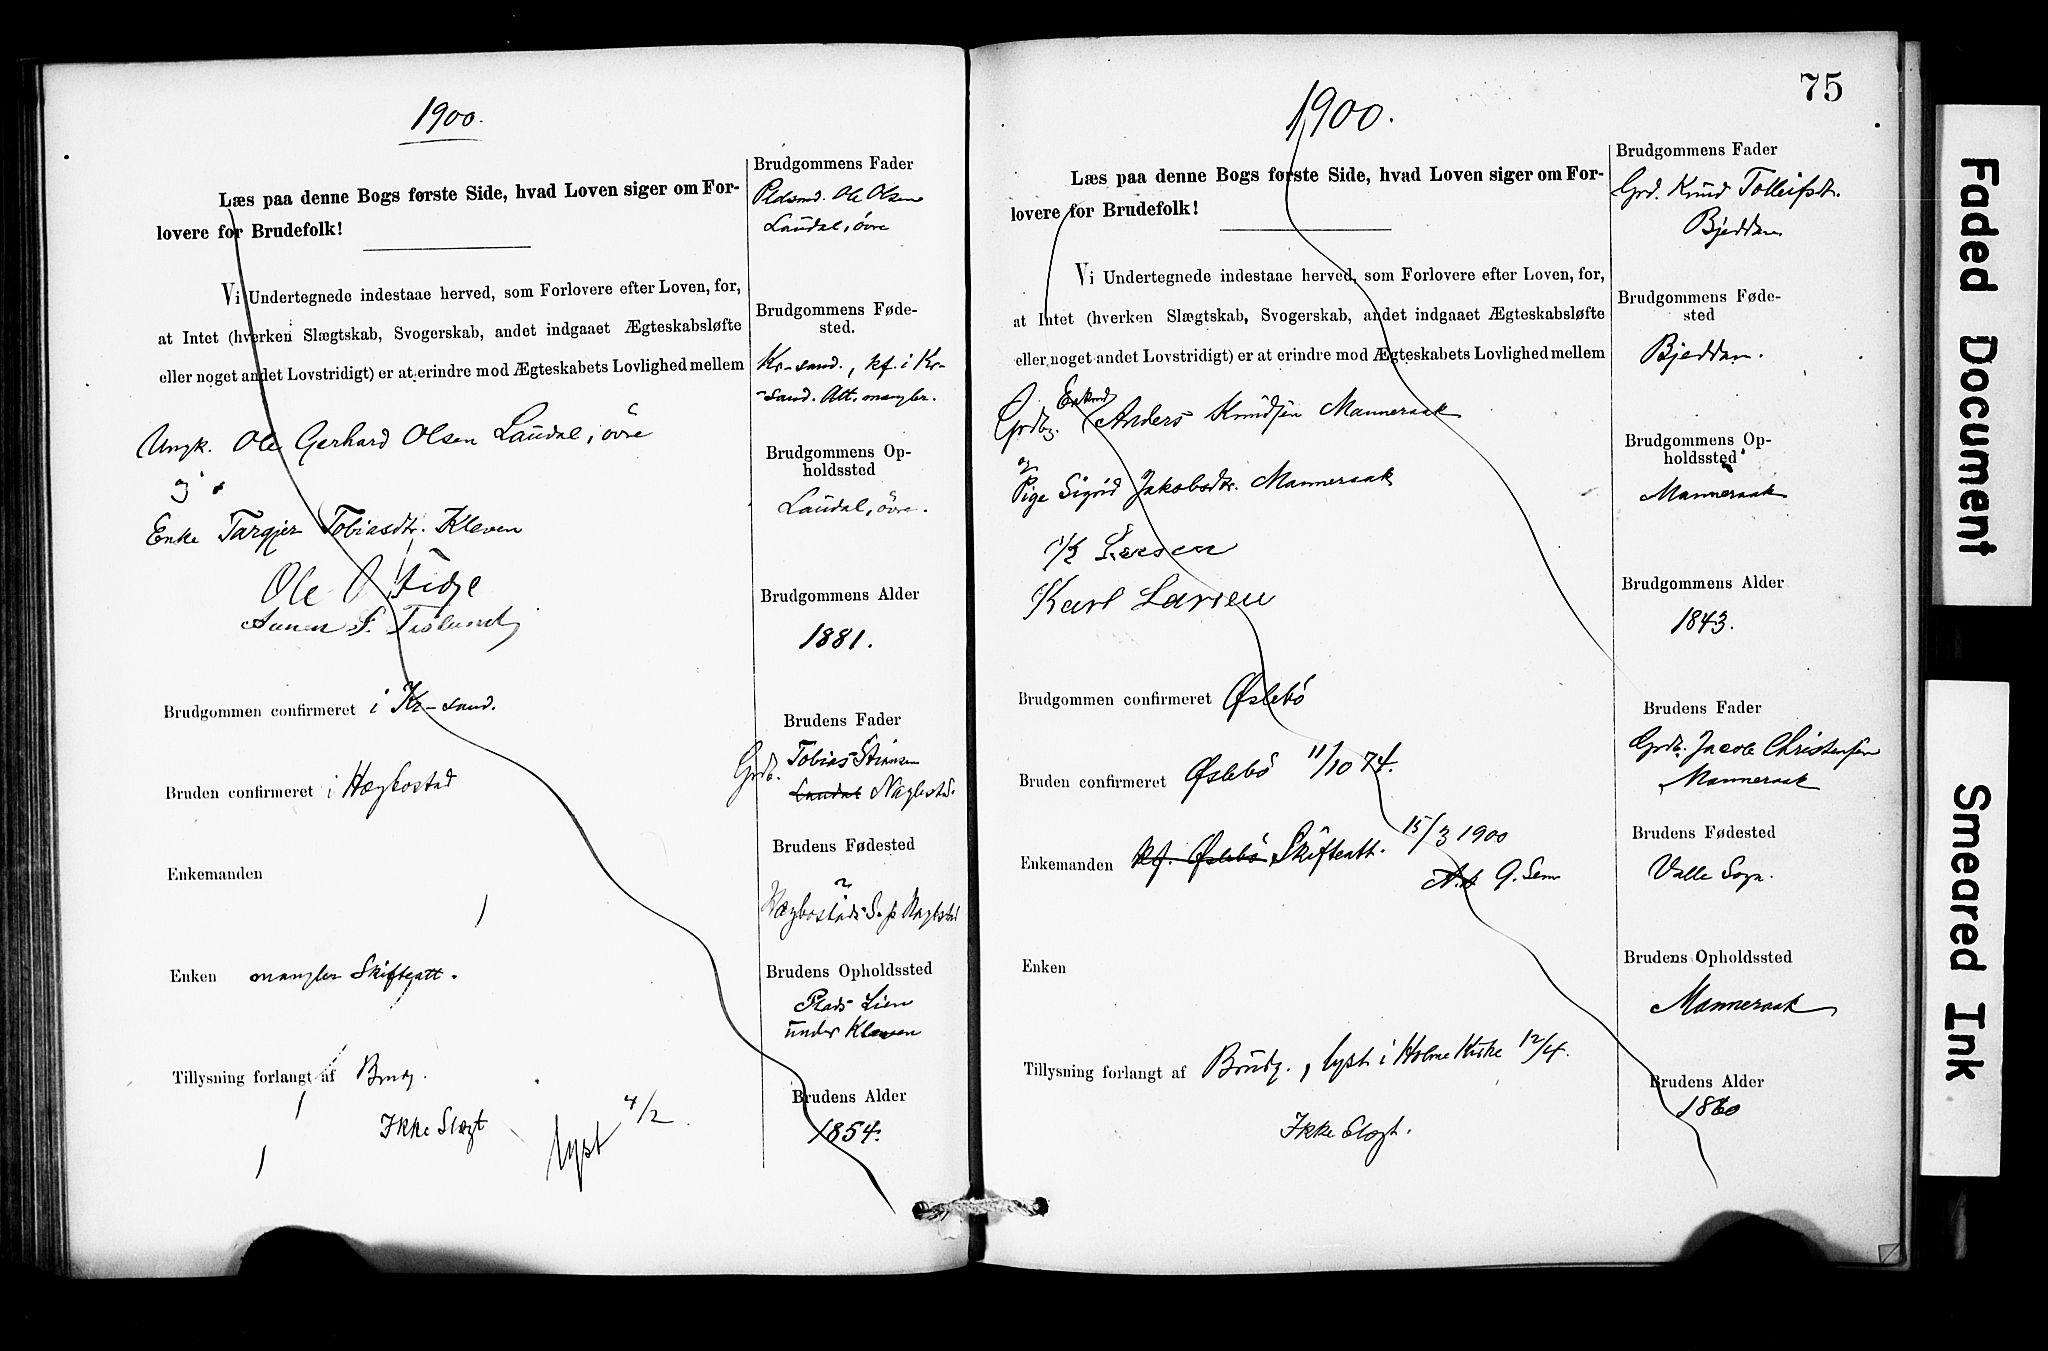 1900.
Læs paa denne Bogs første Side, hvad Loven siger om For-
lovere for Brudefolk!
Vi Undertegnede indestaae herved, som Forlovere efter Loven, for,
at Intet (hverken Slægtskab, Svogerskab, andet indgaaet Ægteskabsløfte
eller noget andet Lovstridigt) er at erindre mod Ægteskabets Lovlighed mellem
Ungk. Ole Gerhard Olsen Laudal, øvre
og
Enke Targjer Tobiasdtr. Kleven
Ole O Fidje
Brudgommen confirmeret i Kr-sand.
Bruden confirmeret i Hægbostad
Enkemanden
Enken mangler Skifteatt.
Tillysning forlangt af Brudg.
Ikke Slægt
lyst 4/2
Brudgommens Fader
Pldsmd. Ole Olsen
Laudal, øvre
Brudgommens Føde-
sted.
Kr-sand., kf. i Kr-
-sand. Att. mangler.
Brudgommens Op-
holdssted
Laudal, øvre.
Brudgommens Alder
1881.
Brudens Fader
Grdb. Tobias Stiansen
Laudal Naglestad.
Brudens Fødested
Hægbostads S.
Brudens Opholdssted
Plads Lien
under Kleven
Brudens Alder
1854.
75
1900.
Læs paa denne Bogs første Side, hvad Loven siger om For-
lovere for Brudefolk!
Vi Undertegnede indestaae herved, som Forlovere efter Loven, for,
at Intet (hverken Slægtskab, Svogerskab, andet indgaaet Ægteskabsløfte
eller noget andet Lovstridigt) er at erindre mod Ægteskabets Lovlighed mellem
Enkmd
Grdbg. Anders Knudsen Manneraak
og
Pige Sigrid Jakobsdtr. Manneraak
Larsen
Karl Larsen
Brudgommen confirmeret Øslebø
Bruden confirmeret Øslebø 11/10 74.
Enkemanden kf. Øslebø Skifteatt. 15/3 1900
Enken
Tillysning forlangt af Brudg., lyst i Holme Kirke 12/4.
Ikke Slægt.
Brudgommens Fader
Grd. Knud Tolleifstr.
Bjeddan
Brudgommens Føde-
sted
Bjeddan.
Brudgommens Op-
holdssted
Manneraak
Brudgommens Alder
1843.
Brudens Fader
Grdb. Jacob Christensen
Manneraak
Brudens Fødested
Valle Sogn.
Brudens Opholdssted
Manneraak
Brudens Alder
1860
Faded Document
Smeared Ink